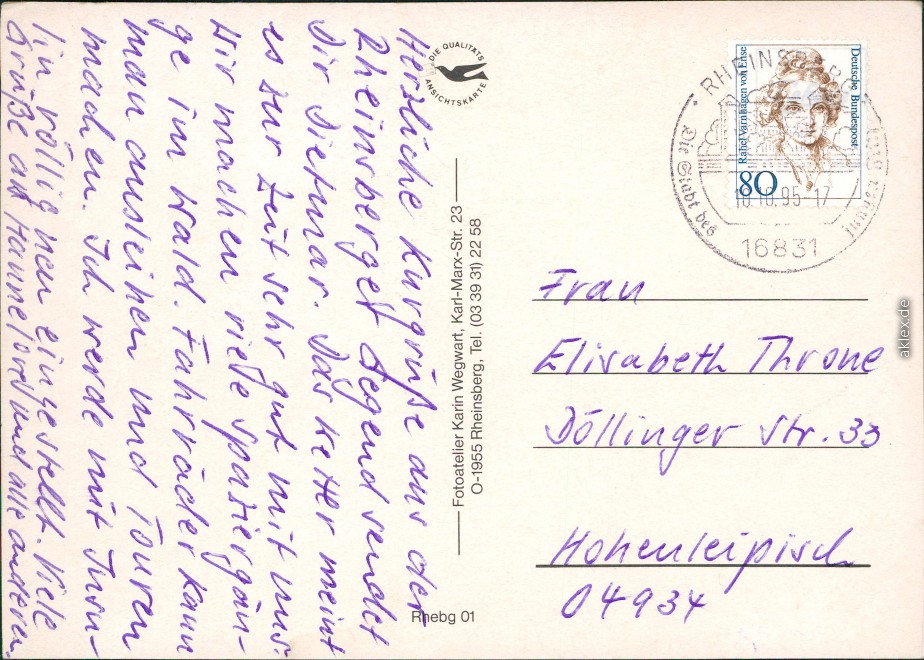 Herzliche Kurgrüße aus der
Rheinsberger Gegend sendet
Dir Dietmar. Das Wetter meint
es zur Zeit sehr gut mit uns.
Wir machen viele Spaziergän-
ge im Wald. Fahrräder kann
man ausleihen und Touren
machen. Ich werde mit Insu-
lin völlig neu eingestellt. Viele
Grüße an Hannelore und alle anderen.
DIE QUALITÄTS
ANSICHTSKARTE
Fotoatelier Karin Wegwart, Karl-Marx-Str. 23
O-1955 Rheinsberg, Tel. (03 39 31) 22 58
Rhebg 01
Deutsche Bundespost
Rahel Varnhagen von Ense
80
RHEINSBERG
Die Stadt des
10.95-17
16831
Frau
Elisabeth Throne
Döllinger Str. 33
Hohenleipisch
04934
aklex.de